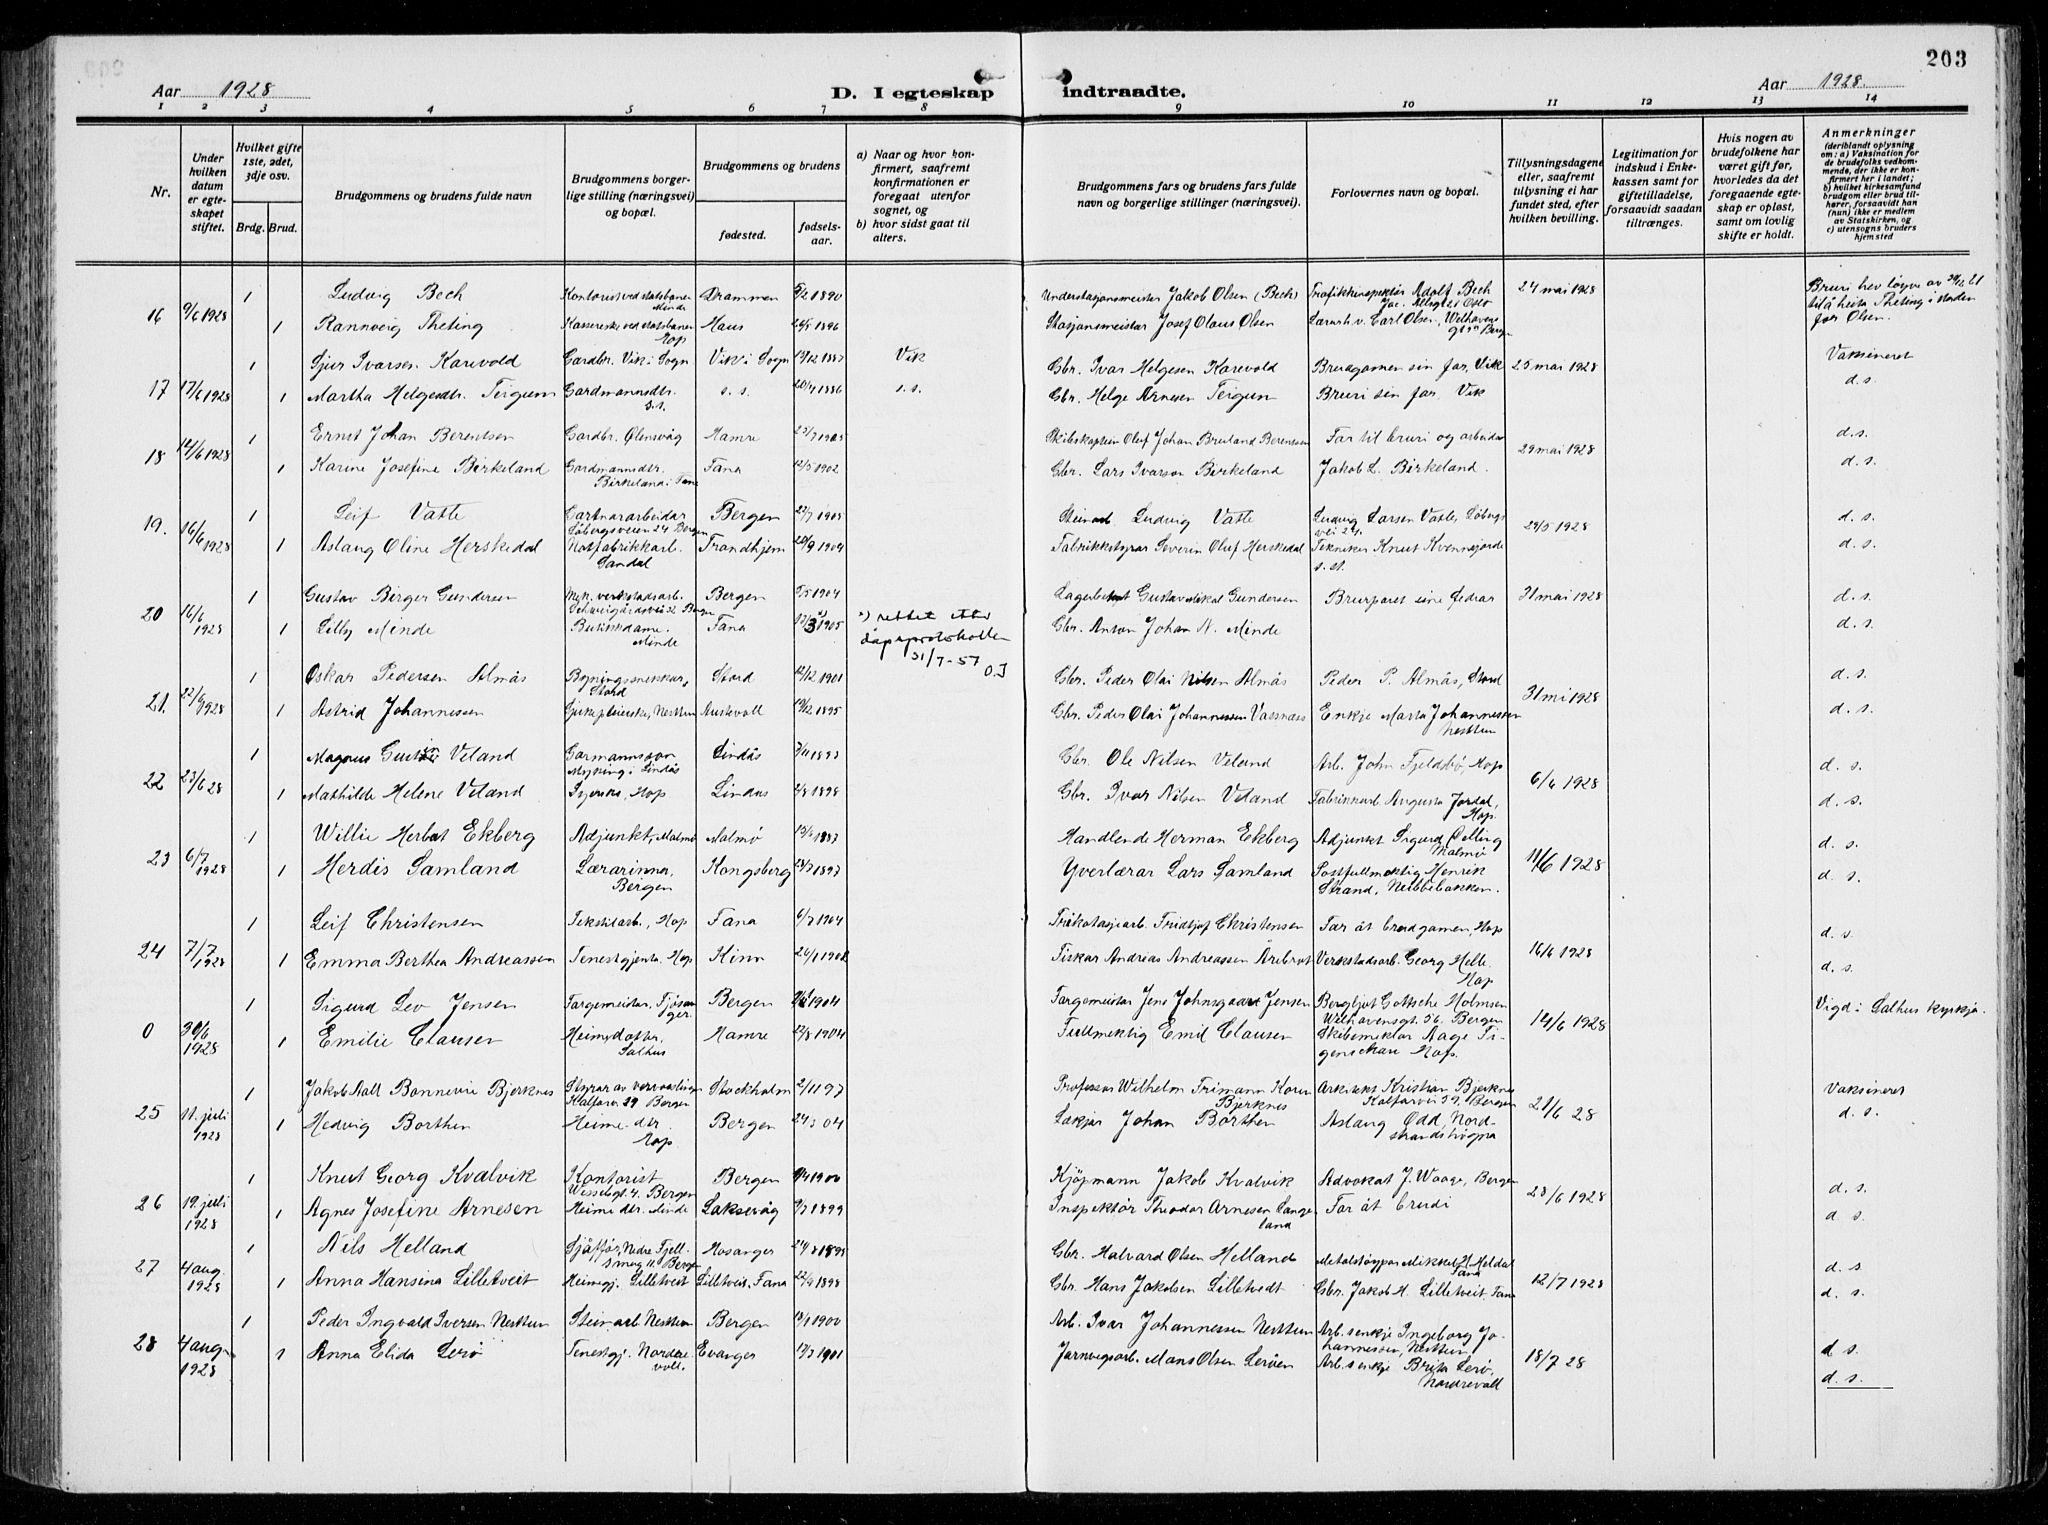 203
Aar 1928 D. I egteskap indtraadte. Aar 1928
1 2 3 4 5 6 7 8 9 10 11 12 13 14
Nr.
Under hvilken datum er egteskapet stiftet.
Hvilket gifte 1ste, 2det, 3dje osv.
Brdg. Brud.
Brudgommens og brudens fulde navn
Brudgommens borgerlige stilling (næringsvei) og bopæl.
Brudgommens og brudens
fødested.
fødselsaar.
a) Naar og hvor konfirmert, saafremt konfirmationen er foregaat utenfor sognet, og
b) hvor sidst gaat til alters.
Brudgommens fars og brudens fars fulde navn og borgerlige stillinger (næringsvei).
Forlovernes navn og bopæl.
Tillysningsdagene eller, saafremt tillysning ei har fundet sted, efter hvilken bevilling.
Legitimation for indskud i Enkekassen samt for giftetilladelse, forsaavidt saadan tiltrænges.
Hvis nogen av brudefolkene har været gift før, hvorledes da det foregaaende egteskap er opløst, samt om lovlig skifte er holdt.
Anmerkninger
(deriblandt oplysning om: a) Vaksination for de brudefolks vedkommende, der ikke er konfirmert her i landet; b) hvilket kirkesamfund brudgom eller brud tilhører, forsaavidt han (hun) ikke er medlem av Statskirken, og c) utensogns bruders hjemsted
16 9/6 1928 1 Ludvig Bech Kontorist ved statsbaner Minde Drammen 1890 Understasjonsmeister Jakob Olsen (Bech) Trafikkinspektør Adolf Bech Oslo 24 mai 1928 Bruri hev løyve av til å heita Theting i staden for Olsen.
1 Rannveig Theting Kassererske ved statsbanen Hop Haus 1896 Stasjonsmeister Josef Olaus Olsen Lærarh. v. Carl Olsen, Welhavens Bergen
17 17/6 1928 1 Sjur Ivarsen Karevold Gardbr. Vik i Sogn Vik i Sogn 1887 Vik Gbr. Ivar Helgesen Karevold Brudgomen sin far, Vik 25 mai 1928 Vaksineret
1 Martha Helgesdtr. Teigum Gardmannsdtr. s.s. s.s. 20/4 1886 s.s. Gbr. Helge Arnesen Teigum Bruri sin far, Vik d.s.
18 14/6 1928 1 Ernst Johan Berentsen Gardbr. Ølensvåg Hamre 23/7 1905 Skibskaptein Oluf Johan Berentsen Far til bruri og arbeidar 29 mai 1928 d.s.
1 Karine Josefine Birkeland Gardmannsdtr. Birkeland i Fana Fana 12/5 1902 Gbr. Lars Ivarson Birkeland Jakob L. Birkeland. d.s.
19. 16/6 1928 1 Leif Vatle Gartnararbeidar Løbergsveien 24 Bergen Bergen 22/7 1905 Steinarb Ludvig Vatle Ludvig Larsen Vatle, Løbergsvei 24. 29/5 1928 d.s.
1 Aslaug Oline Herskedal Notfabrikkarb. Sandal Trondhjem 20/9 1904 Fabrikkstyrar Severin Oluf Herskedal Tekniker Knut Kvennsjorde s.st. d.s.
20 16/6 1928 1 Gustav Birger Gundersen Mek. verkstadsarb. Schweigårdsvei 32 Bergen Bergen 1904 Lagerbet Gustav Mikal Gundersen Brurparet sine fedrar 31 mai 1928 d.s.
1 Lilly Minde Butikkdame. Minde Fana 1905 rettet etter dåpsprotokollen 31/7-57 O.J Gbr. Anton Johan N. Minde d.s.
21. 22/6 1928 1 Oskar Pedersen Almås Bygningssnekkar, Stord Stord 12/12 1901 Gbr. Peder Olai Nilsen Almås Peder P. Almås, Stord 31 mi 1928 d.s.
1 Astrid Johannessen Sjukepleierske, Nesttun Austevoll 1895 Gbr. Peder Olai Johannessen Vassnæs Enkje Marta Johannessen Nesttun d.s.
22 23/6 28 1 Magnus Gustav Veland Garmannsson Myking i Lindås Lindås 1893 Gbr. Ole Nilsen Veland Arb. John Fjeldsbø, Hop 6/6 1928 d.s.
1 Mathilde Helene Veland Syerske, Hop Lindås 1898 Gbr. Ivar Nilsen Veland Fabrikkarb. Augusta Jordal, Hop. d.s.
23 6/7 1928 1 Willie Herbert Ekberg Adjunkt, Malmø Malmø 1887 Handlende Herman Ekberg Adjunkt Sigurd Malmø 11/6 1928 d.s.
1 Herdis Samland Lærarinna, Bergen Kongsberg 1897 Yverlærar Lars Samland Postfullmektig Henrik Strand, Nubbebakken. d.s.
24 7/7 1928 1 Leif Christensen Tekstilarb., Hop Fana 6/7 1904 Trikotasjearb. Fridtjof Christensen Far åt brudgomen, Hop 16/6 1928 d.s.
1 Emma Berthea Andreassen Tenestgjenta, Hop Kinn Fiskar Andreas Andreassen Årebrot Verkstadsarb. Georg Helle. Hop d.s.
0 30/6 1928 1 Sigurd Lev Jensen Fargemeister, Fjøsanger. Bergen 1904 Fargemeister Jens Johnsgaard Jensen Bergljot Gottsche Holmsen Welhavensgt. 56. Bergen 14/6 1928 Vigd i Salhus kyrkje.
1 Emilie Clausen Heimedotter, Salhus Hamre 22/8 1904 Fullmektig Emil Clausen Skibsmeklar Aage Figenschau Hop.
25 11. juli 1928 1 Jakob Aall Bonnevie Bjerknes Styrar av vervarslingen Kalfarv. 29 Bergen Stockholm 2/11 97 Professor Wilhelm Friman Koren Bjerknes Arkitekt Kristian Bjerknes Kalfarvei 59, Bergen 21/6 28 Vaksineret
1 Hedvig Borthen Heime-dtr. Hop. Bergen 24/3 04 Lækjar Johan Borthen Aslaug Odd, Nordstrandshøgna d.s.
26 19. juli 1928 1 Knut Georg Kvalvik Kontorist Wesselsgt. 4. Bergen Bergen 1900 Kjøpmann Jakob Kvalvik Advokat J. Waage, Bergen 28/6 1928 d.s.
1 Agnes Josefine Arnesen Heime dtr. Minde Laksevåg 1899 Inspektør Theodor Arnesen Langeland Far åt brudi d s.
27 4 aug. 1928 1 Nils Helland Sjåffør, Nedre Fjellsmug 11. Bergen Hosanger Gbr. Halvard Olsen Helland Metalstøyper Mikkel H. Heldal Fana 12/7 1928 d.s.
1 Anna Hansina Lilletveit Heimegj. Lilletveit Lilletveit, Fana 22/9 1898 Gbr. Hans Jakobsen Lilletvedt Gbr. Jakob H. Lilletveit Fana d.s.
28 4 aug. 1928 1 Peder Ingvald Iversen Nesttun Steinarb Nesttun Bergen 1900 Arb. Ivar Johannessen Nesttun Arb.s enkje Ingeborg Johannessen, Nesttun 18/7 28 d s.
1 Anna Elida Lerø Tenestgj. Nordrevoll. Evanger 1901 Jarnvegsarb. Mons Olsen Lerøen Arb.s enkje Brita Lerø, Nordrevoll d.s.